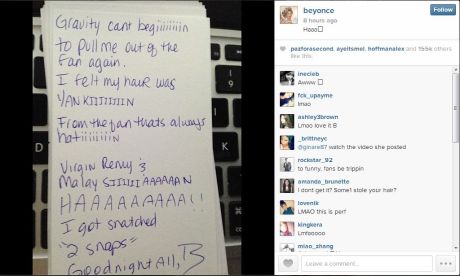 Gravity cant begiiiiiiiin
to pull me out of the
fan again.
I felt my hair was
YANKIIIIIIIN
From the fan thats always
hatiiiiiiiin
Virgin Remy &
Malay SIIIIIIAAAAAAN
HAAAAAAAAA!!
I got snatched
"2 snaps"
Goodnight All, B
beyonce
8 hours ago
Haaa
Follow
pazforasecond, ayeitsmel, hoffmanalex and 155k others
like this.
inecieb
Awww
fck_upayme
lmao
ashley3brown
Lmao love it B
_brittneyc
@ginare87 watch the video she posted
rockstar_92
to funny, fans be trippin
amanda_brunette
I dont get it? Some1 stole your hair?
lovenik
LMAO this is perf
kingkera
Lmfooooo
miao_zhang
Leave a comment...